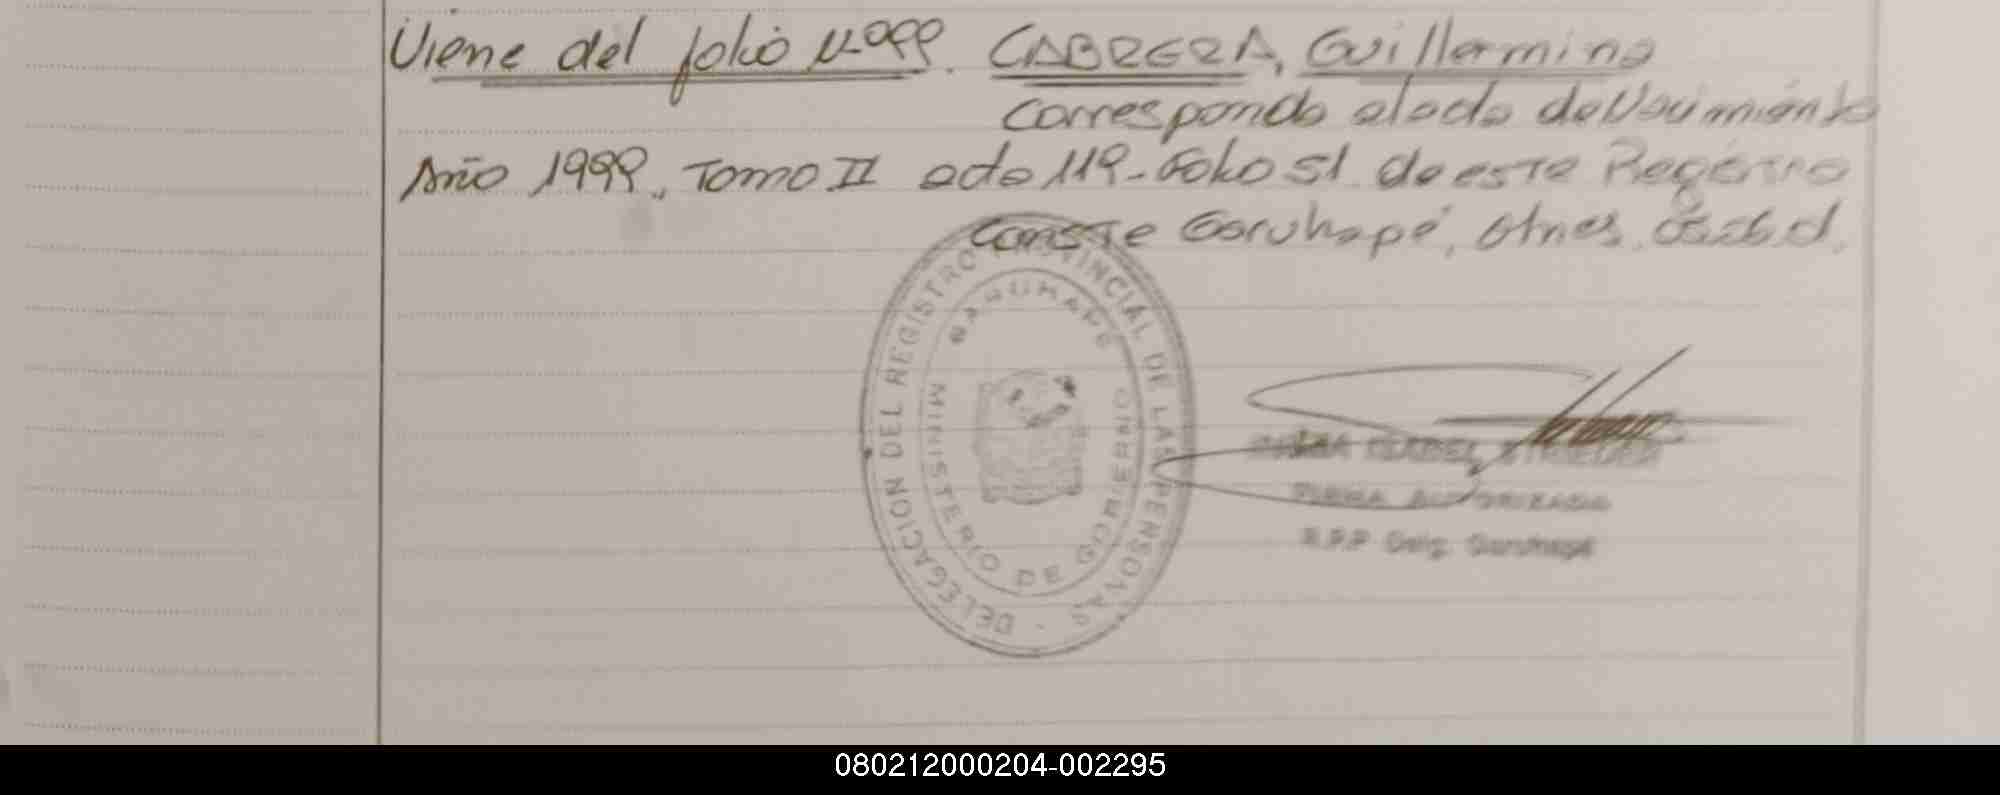 Viene del folio Nº 99. CABRERA, Guillermina
Corresponde al acta de Nacimiento
Año 1999, Tomo II acta 119 - Folio 51 de este Registro
Conste Garuhapé, Mnes.
DELEGACION DEL REGISTRO PROVINCIAL DE LAS PERSONAS -
GARUHAPE
MINISTERIO DE GOBIERNO
ISABEL
FIRMA AUTORIZADA
R.P.P Delg. Garuhapé
080212000204-002295